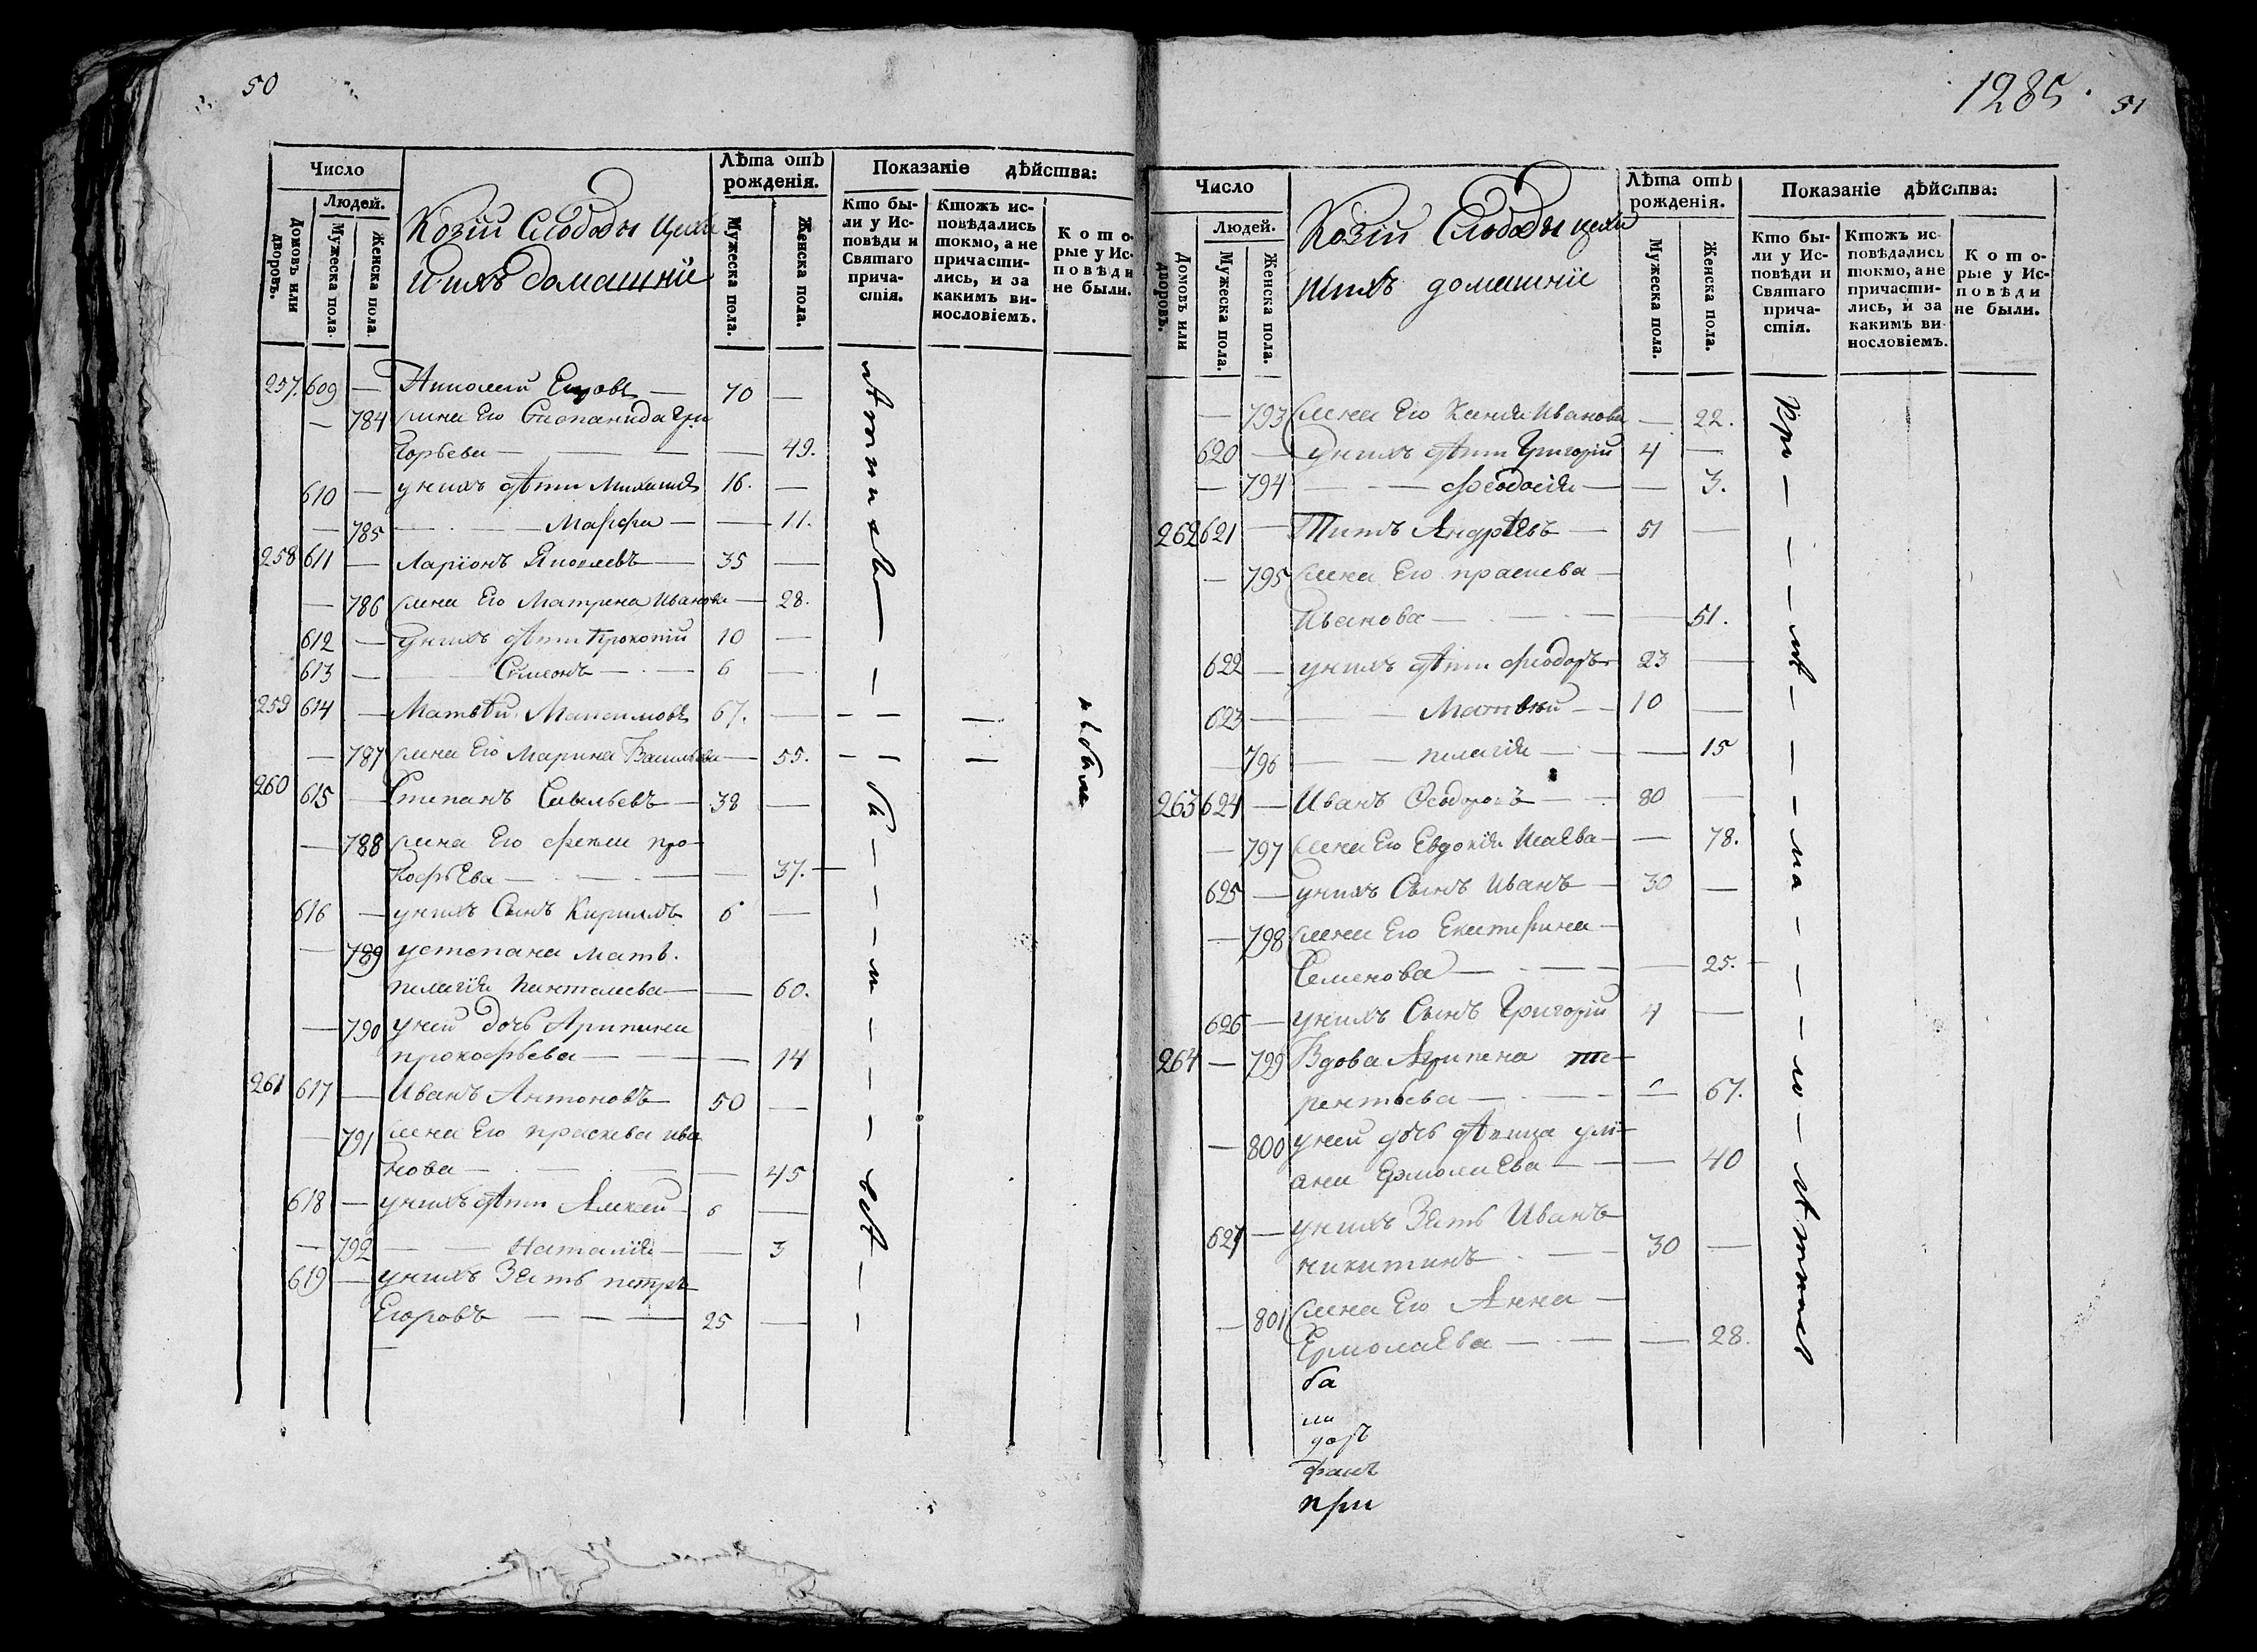 50
Число
Людей.
Домовъ или дворовъ.
Мужеска пола.
Женска пола.
Козiй Слободы цехи
и ихъ домашнiи
Лѣта отъ рожденiя.
Мужеска пола.
Женска пола.
Показанiе дѣйства:
Кто были у Исповѣди и Святаго причастiя.
Ктожъ исповѣдались токмо, а не причастились, и за какимъ винословiемъ.
Которые у Исповѣди не были.
257. 609 — Егоровъ — 70 —
— 784 жена Его Степанида Гри
горьева — — — — 49.
610 — у нихъ дѣти Михаилъ 16. —
— 785 — — Марфа — — 11.
258 611 — Ларiонъ Яковлевъ — 35 —
— 786 жена Его Матрена Иванова — 28.
612 — у нихъ дѣти Прокопiй 10 —
613 — — Симеонъ — 6 —
259 614 — Матвѣй Максимовъ 67. — — — —
— 787 жена Его Марина Васильева — 55. — — —
не были
260 615 — Степанъ Савельевъ — 38 —
— 788 жена Его Фекла про-
кофьева — — — 37. —
616 — у нихъ Сынъ Кирилъ 6 —
— 789 у степана мать.
пелагiя Панталеева — — 60.
— 790 у ней дочь Арипина
прокофьева — — — 14
261 617 — Иванъ Антоновъ 50 —
— 791 жена Его праскева ива
нова — — — 45
618 — у нихъ дѣти Алексей 6 —
— 792 — — Наталiя — — 3
619 — у нихъ Зять петръ
Егоровъ — — — 25 —
1285. 51
Число
Людей.
Домовъ или дворовъ.
Мужеска пола.
Женска пола.
Козiй Слободы цехи
и ихъ домашнiи
Лѣта отъ рожденiя.
Мужеска пола.
Женска пола.
Показанiе дѣйства:
Кто были у Исповѣди и Святаго причастiя.
Ктожъ исповѣдались токмо, а не причастились, и за какимъ винословiемъ.
Которые у Исповѣди не были.
— 793 жена Его Иванова — 22.
620 — у нихъ дѣти Григорiй 4 —
— 794 — — феодосiя — — 3.
262 621 — Титъ Андрѣевъ — 51 —
— 795 жена Его праскева —
Иванова — — — 51.
622 — у нихъ дѣти феодоръ 23 —
623 — — Матвѣй — 10 —
— 796 — — пелагiя — — 15
263 624 — Иванъ Феодоровъ — 80 —
— 797 жена Его Евдокiя Исаева — — 78.
625 — у нихъ Сынъ Иванъ — 30 —
— 798 жена Его Екатерина —
Семенова — — — 25. —
626 — у нихъ Сынъ Григорiй 4 —
264 — 799 Вдова Агрипена те-
рентьева — — — 67.
— 800 у ней дочь дѣвица ули-
ана Ермолаева — — — 40
627 — у нихъ Зять Иванъ
никитинъ — — 30 —
— 801 жена Его Анна —
Ермолаева — — — 28.
ба
ли
доръ
фанъ
при